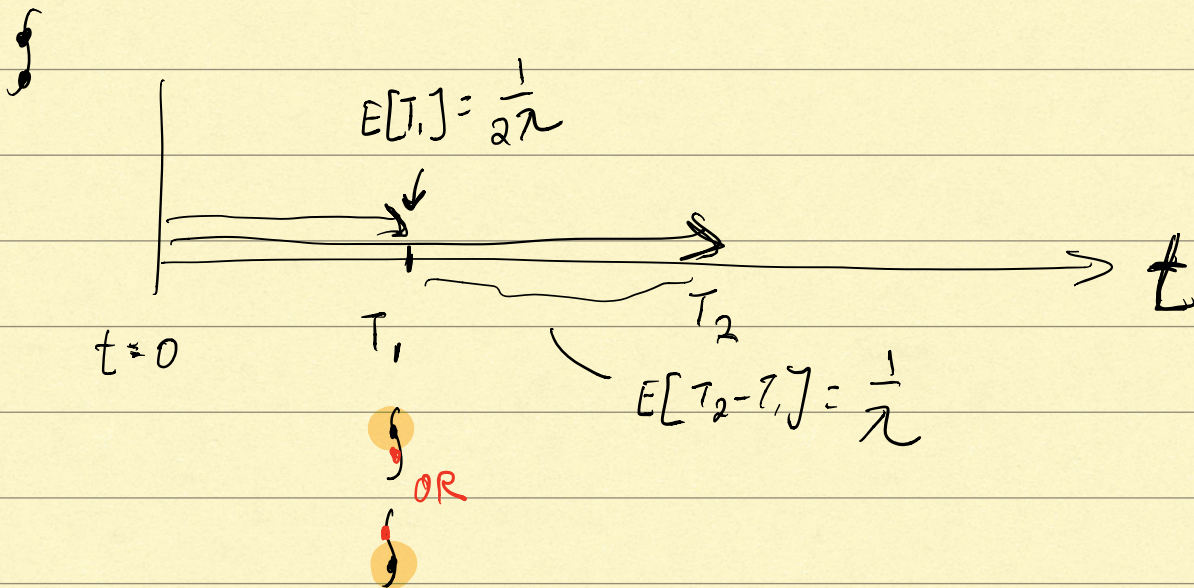 E[T₁] = 1/2λ
t
T₂
t = 0
T₁
E[T₂-T₁] = 1/λ
OR